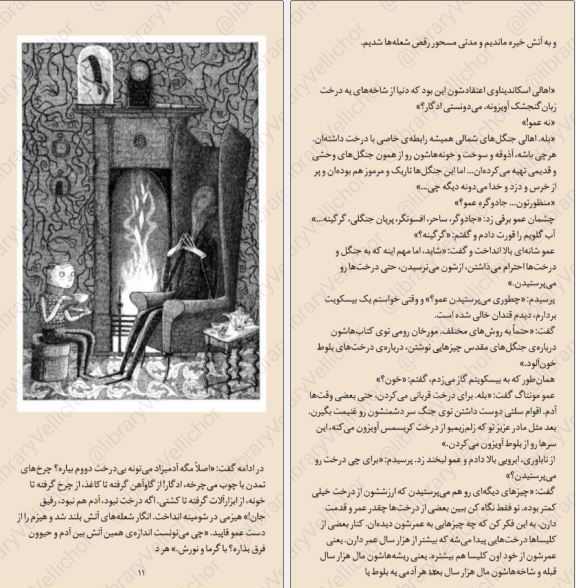 و به آتش خیره ماندیم و مدتی مسحور رقص شعله‌ها شدیم.
«اهالی اسکاندیناوی اعتقادشون این بود که دنیا از شاخه‌های یه درخت
زبان گنجشک آویزونه. می‌دونستی ادگار؟»
«نه عمو!»
«بله. اهالی جنگل‌های شمالی همیشه رابطه‌ی خاصی با درخت داشته‌ان.
هرچی باشه، آذوقه و سوخت و خونه‌هاشون رو از همون جنگل‌های وحشی
و قدیمی تهیه می‌کرده‌ان... اما این جنگل‌ها تاریک و مرموز هم بوده‌ان و پر
از خرس و دزد و خدا می‌دونه دیگه چی...»
«منظورتون... جادوگره عمو؟»
چشمان عمو برقی زد: «جادوگر، ساحر، افسونگر، پریان جنگلی، گرگینه...»
آب گلویم را قورت دادم و گفتم: «گرگینه؟»
عمو شانه‌ای بالا انداخت و گفت: «شاید. اما مهم اینه که به جنگل و
درخت‌ها احترام می‌ذاشتن، ازشون می‌ترسیدن، حتی درخت‌ها رو
می‌پرستیدن.»
پرسیدم: «چطوری می‌پرستیدن عمو؟» و وقتی خواستم یک بیسکویت
بردارم، دیدم قندان خالی شده است.
گفت: «حتماً به روش‌های مختلف. مورخان رومی توی کتاب‌هاشون
درباره‌ی جنگل‌های مقدس چیزهایی نوشتن، درباره‌ی درخت‌های بلوط
خون‌آلود.»
همان‌طور که به بیسکویتم گاز می‌زدم، گفتم: «خون؟»
عمو مونتاگ گفت: «بله. برای درخت قربانی می‌کردن، حتی بعضی وقت‌ها
آدم. اقوام سلتی دوست داشتن توی جنگ سر دشمنشون رو غنیمت بگیرن.
بعد مثل مادر عزیز تو که زلم‌زیمبو از درخت کریسمس آویزون می‌کنه، این
سرها رو از بلوط آویزون می‌کردن.»
از ناباوری، ابرویی بالا دادم و عمو لبخند زد. پرسیدم: «برای چی درخت رو
می‌پرستیدن؟»
گفت: «چیزهای دیگه‌ای رو هم می‌پرستیدن که ارزششون از درخت خیلی
کمتر بوده. تو فقط نگاه کن ببین بعضی از درخت‌ها چقدر عمر و قدمت
دارن. به این فکر کن که چه چیزهایی به عمرشون دیده‌ان. کنار بعضی از
کلیساها درخت‌هایی پیدا می‌شه که بیشتر از هزار سال عمر دارن. یعنی
عمرشون از خود اون کلیسا هم بیشتره. یعنی ریشه‌هاشون مال هزار سال
قبله و شاخه‌هاشون مال هزار سال بعد. هر آدمی یه بلوط یا
در ادامه گفت: «اصلاً مگه آدمیزاد می‌تونه بی‌درخت دووم بیاره؟ چرخ‌های
تمدن با چوب می‌چرخه، ادگار! از گاوآهن گرفته تا کاغذ، از چرخ گرفته تا
خونه، از ابزارآلات گرفته تا کشتی. اگه درخت نبود، آدم هم نبود، رفیق
جان!» هیزمی در شومینه انداخت. انگار شعله‌های آتش بلند شد و هیزم را از
دست عمو قاپید. «چی می‌تونست اندازه‌ی همین آتش بین آدم و حیوون
فرق بذاره؟ با گرما و نورش.» هر دو
۱۱
@libraryVellichor